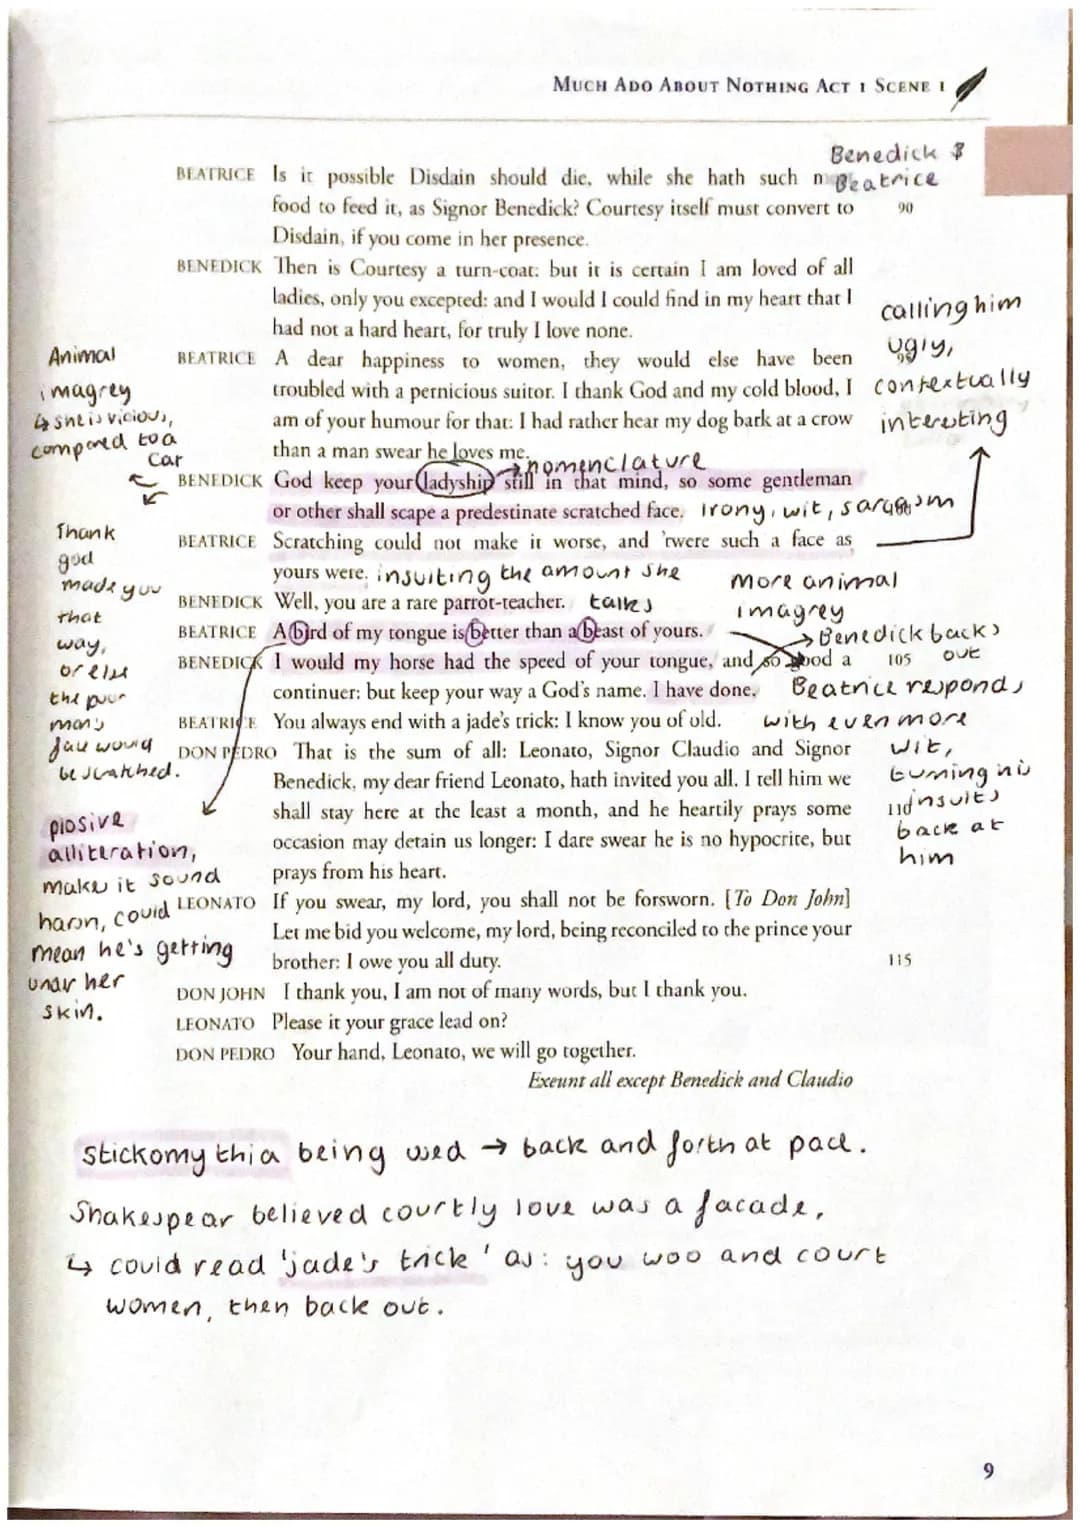 MUCH ADO ABOUT NOTHING ACT 1 SCENE 1
Benedick &
Beatrice
BEATRICE Is it possible Disdain should die, while she hath such
food to feed it, as Signor Benedick? Courtesy itself must convert to 90
Disdain, if you come in her presence.
BENEDICK Then is Courtesy a turn-coat: but it is certain I am loved of all
ladies, only you excepted: and I would I could find in my heart that I
had not a hard heart, for truly I love none.
calling him
ugly,
contextually
interesting
Animal
imagrey
↳ she is vicious,
compared to a
car
BEATRICE A dear happiness to women, they would else have been
troubled with a pernicious suitor. I thank God and my cold blood, I
am of your humour for that: I had rather hear my dog bark at a crow
than a man swear he loves me.
→ nomenclature
BENEDICK God keep your ladyship still in that mind, so some gentleman
or other shall scape a predestinate scratched face. Irony, wit, sarcasm
BEATRICE Scratching could not make it worse, and 'twere such a face as
yours were. insulting the amount she
talks
Thank
god
made you
that
way,
or else
the poor
man's
face would
be scratched.
BENEDICK Well, you are a rare parrot-teacher.
more animal
imagrey
BEATRICE A bird of my tongue is better than a beast of yours.
→ Benedick backs
out
BENEDICK I would my horse had the speed of your tongue, and so good a 105
continuer: but keep your way a God's name. I have done.
Beatrice responds
with even more
wit,
turning his
insults
back at
him
BEATRICE You always end with a jade's trick: I know you of old.
DON PEDRO That is the sum of all: Leonato, Signor Claudio and Signor
Benedick, my dear friend Leonato, hath invited you all. I tell him we
shall stay here at the least a month, and he heartily prays some 110
occasion may detain us longer: I dare swear he is no hypocrite, but
prays from his heart.
plosive
alliteration,
make it sound
harsh, could
mean he's getting
under her
skin.
LEONATO If you swear, my lord, you shall not be forsworn. [To Don John]
Let me bid you welcome, my lord, being reconciled to the prince your
brother: I owe you all duty. 115
DON JOHN I thank you, I am not of many words, but I thank you.
LEONATO Please it your grace lead on?
DON PEDRO Your hand, Leonato, we will go together.
Exeunt all except Benedick and Claudio
stickomythia being used → back and forth at pace.
Shakespear believed courtly love was a facade,
↳ could read 'jade's trick' as: you woo and court
women, then back out.
9